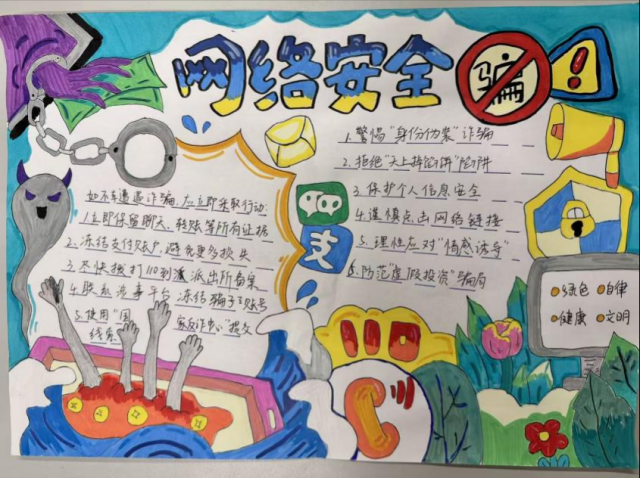 网络安全
骗
1.警惕"身份伪装"诈骗
2.拒绝"天上掉馅饼"陷阱
3.保护个人信息安全
4.谨慎点击网络链接
5.理性应对"情感诱导"
6.防范"虚假投资"骗局
如不幸遭遇诈骗,应立即采取行动:
1.立即保留聊天、转账等所有证据
2.冻结支付账户,避免更多损失
3.尽快拨打110到派出所备案
4.联系涉事平台 冻结骗子账号
5.使用"国家反诈中心"提交
线索
支
110
绿色 自律
健康 文明